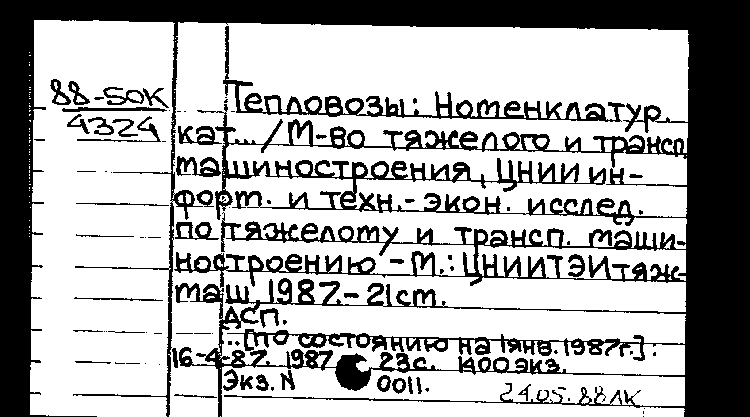 88-50К
4324
Тепловозы: Номенклатур.
кат... / М-во тяжелого и трансп.
машиностроения, ЦНИИ ин-
форт. и техн.-экон. исслед.
по тяжелому и трансп. маши-
ностроению - М.: ЦНИИТЭИтяж-
маш, 1987. - 21 ст.
ДСП.
...[по состоянию на 1 янв. 1987г.] :
16-4-87. 1987 23с. 1400 экз.
Экз. N 0011.
24.05.88 ЛК